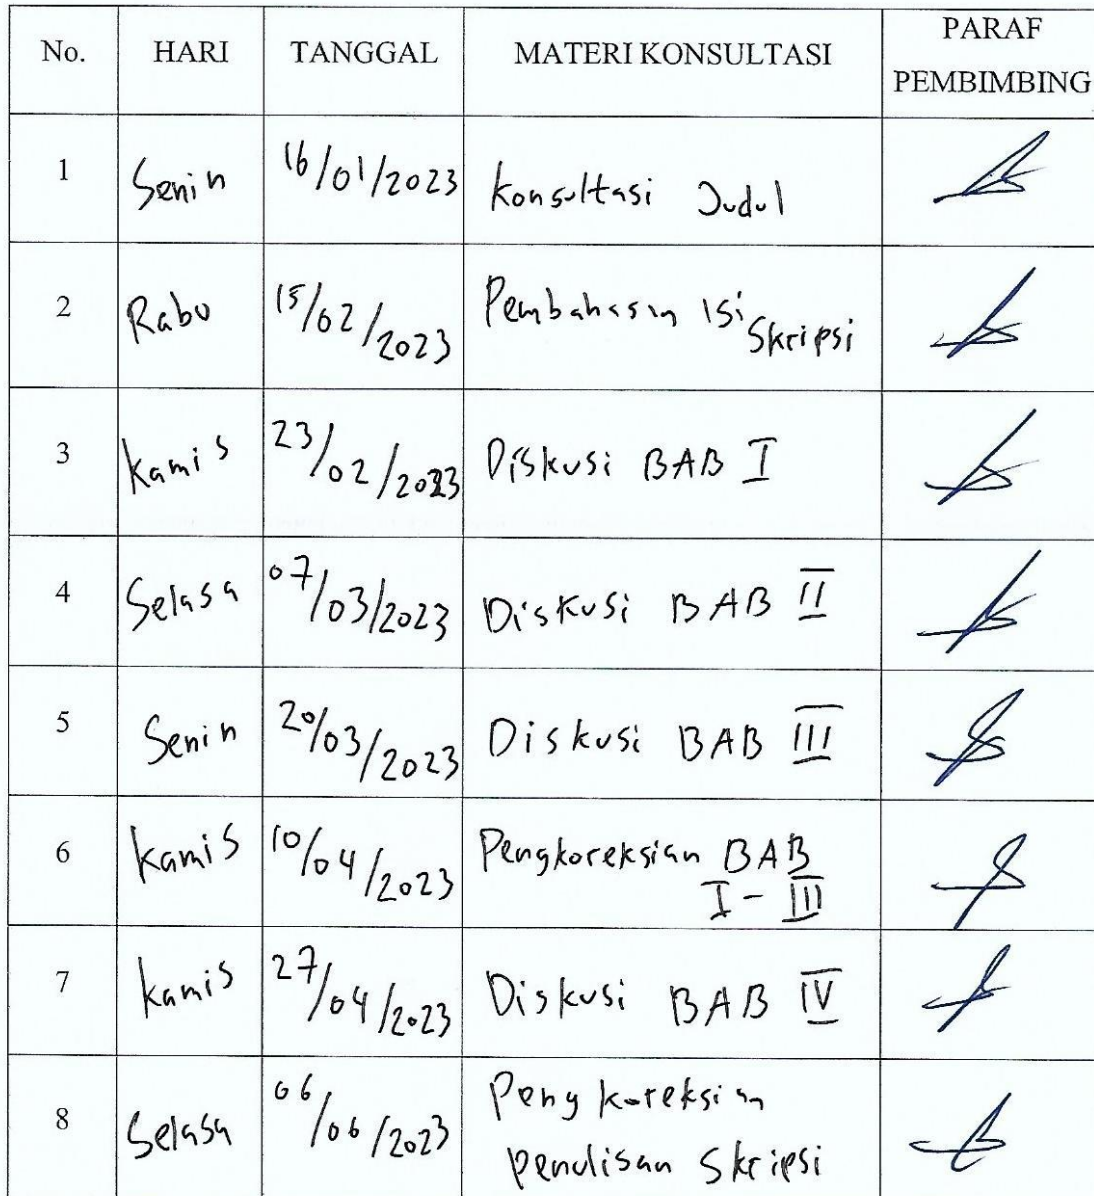 No. HARI TANGGAL MATERI KONSULTASI PARAF PEMBIMBING
1 Senin 16/01/2023 Konsultasi Judul
2 Rabu 15/02/2023 Pembahasan Isi Skripsi
3 Kamis 23/02/2023 Diskusi BAB I
4 Selasa 07/03/2023 Diskusi BAB II
5 Senin 20/03/2023 Diskusi BAB III
6 Kamis 10/04/2023 Pengkoreksian BAB
I - III
7 Kamis 27/04/2023 Diskusi BAB IV
8 Selasa 06/06/2023 Pengkoreksian
penulisan Skripsi